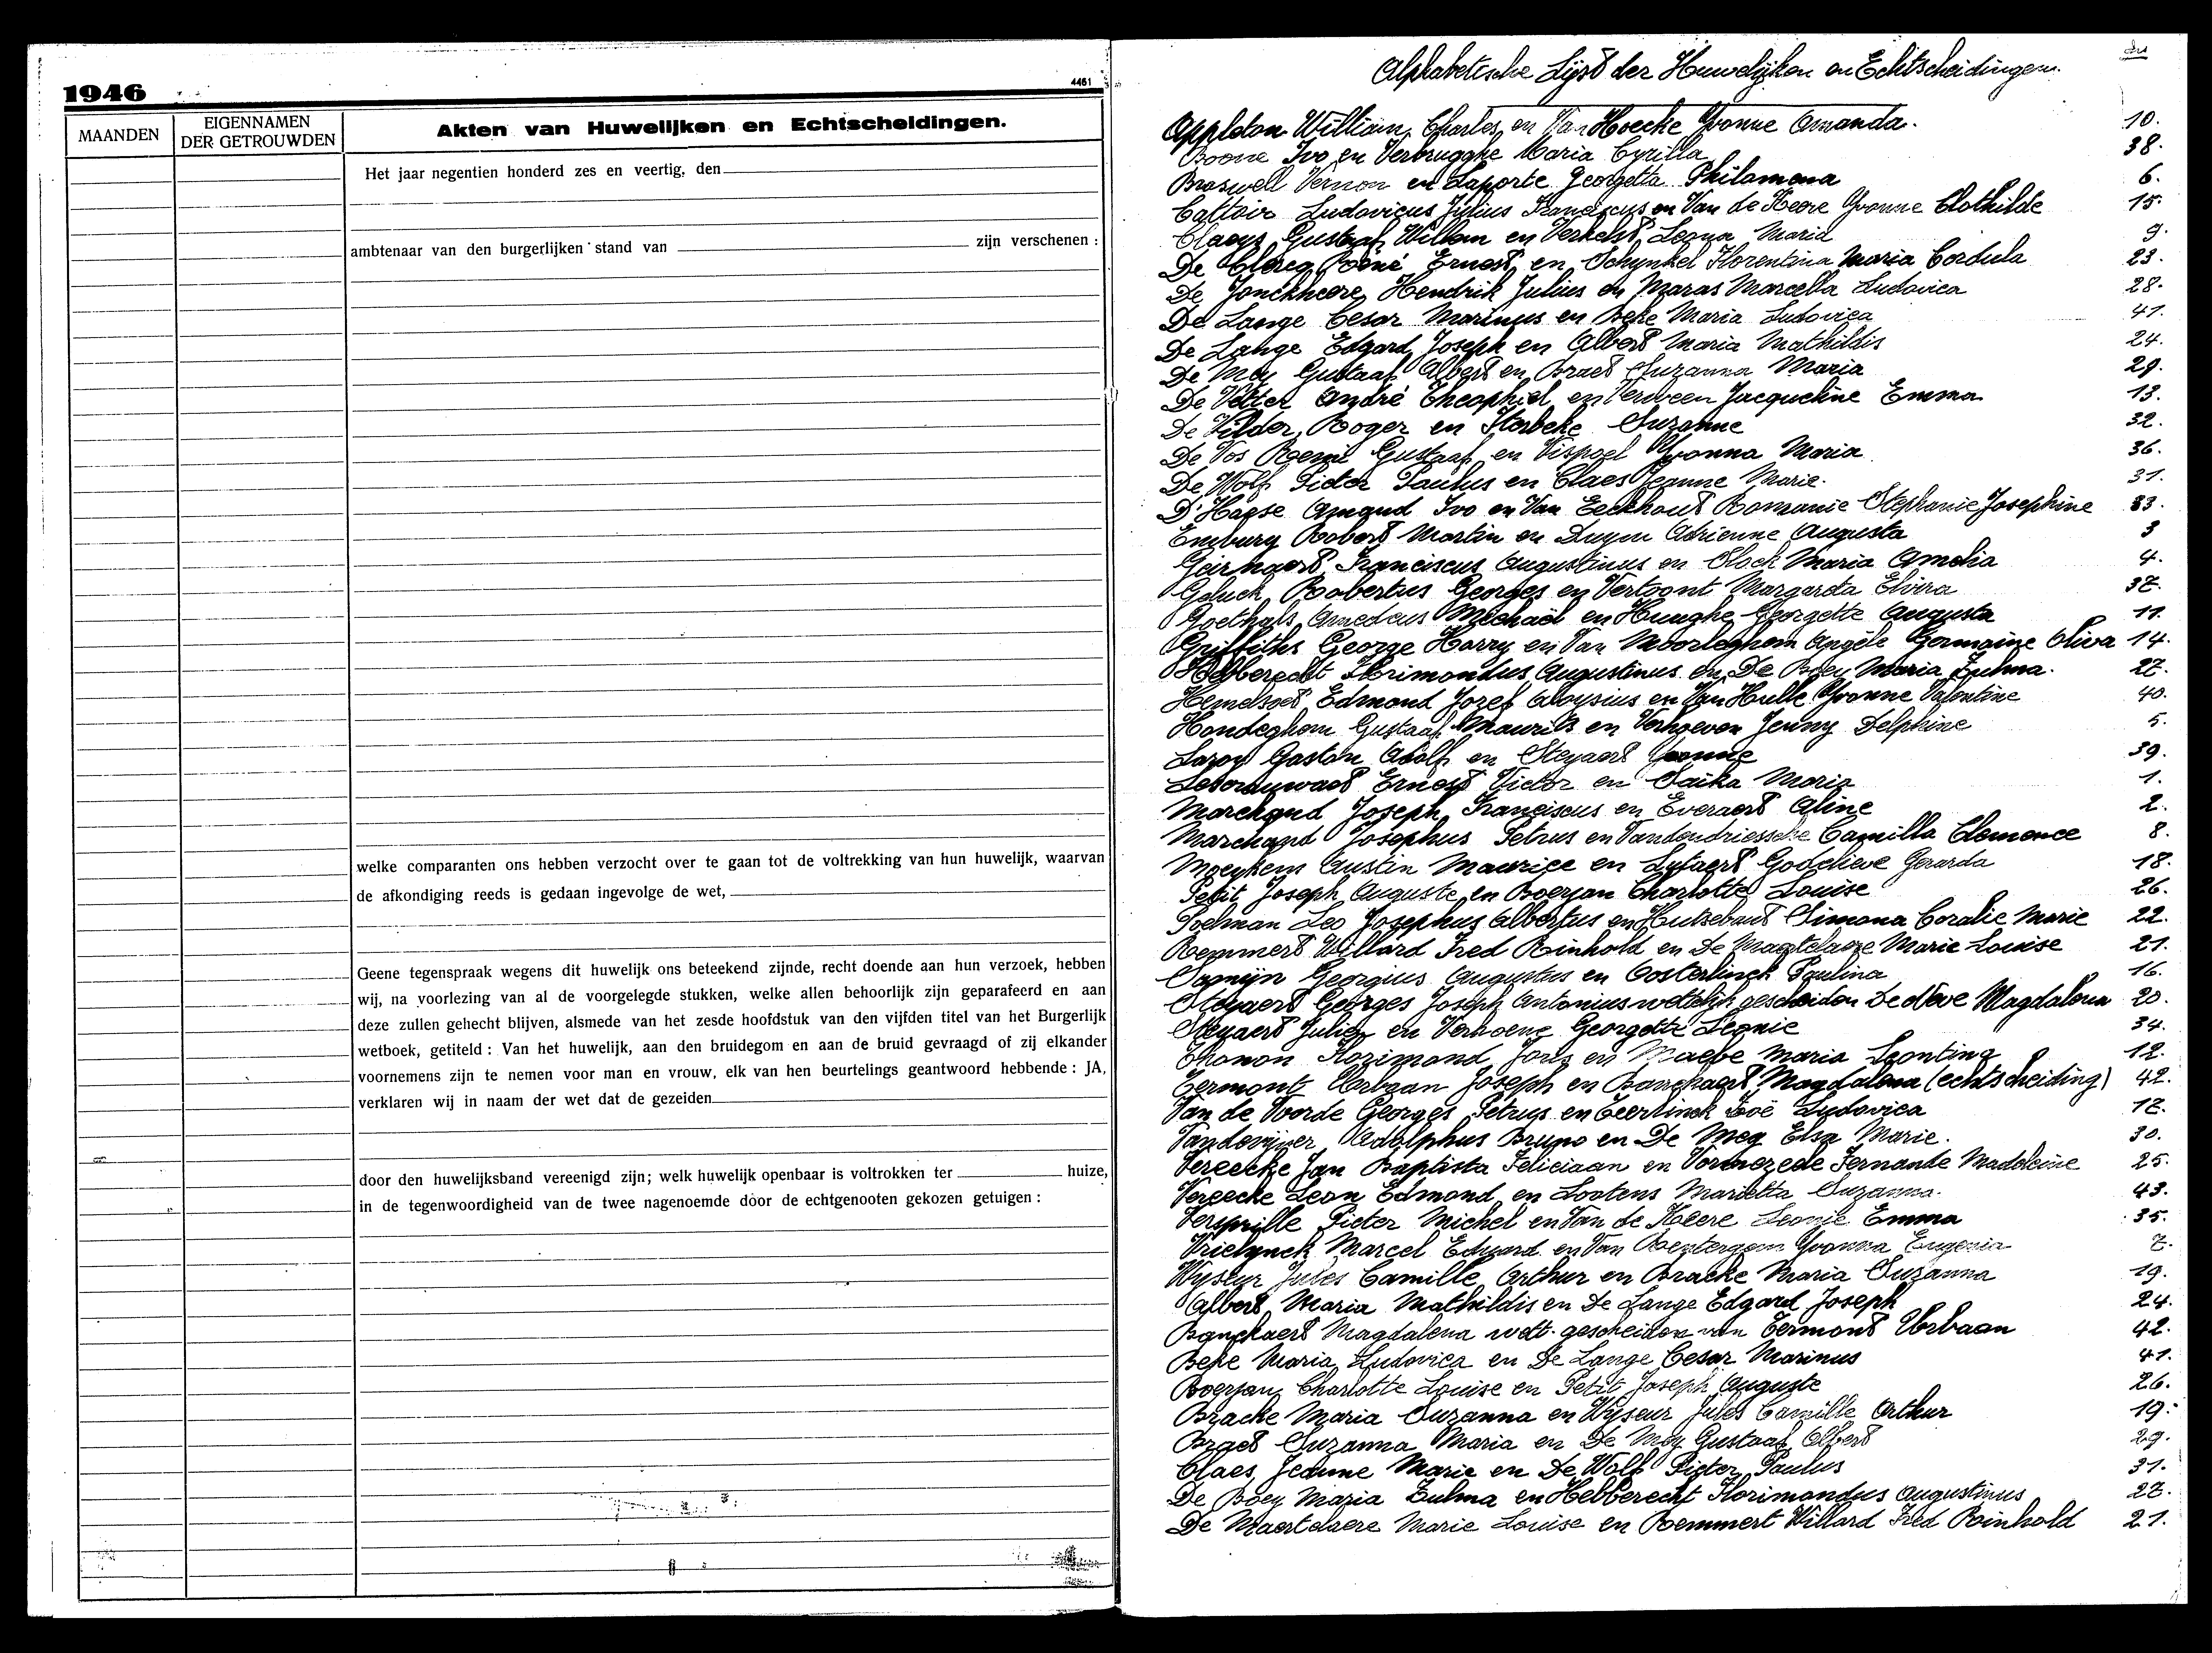 1946
4461
MAANDEN
EIGENNAMEN
DER GETROUWDEN
Akten van Huwelijken en Echtscheidingen.
Het jaar negentien honderd zes en veertig, den
ambtenaar van den burgerlijken stand van zijn verschenen :
welke comparanten ons hebben verzocht over te gaan tot de voltrekking van hun huwelijk, waarvan
de afkondiging reeds is gedaan ingevolge de wet,
Geene tegenspraak wegens dit huwelijk ons beteekend zijnde, recht doende aan hun verzoek, hebben
wij, na voorlezing van al de voorgelegde stukken, welke allen behoorlijk zijn geparafeerd en aan
deze zullen gehecht blijven, alsmede van het zesde hoofdstuk van den vijfden titel van het Burgerlijk
wetboek, getiteld : Van het huwelijk, aan den bruidegom en aan de bruid gevraagd of zij elkander
voornemens zijn te nemen voor man en vrouw, elk van hen beurtelings geantwoord hebbende : JA,
verklaren wij in naam der wet dat de gezeiden
door den huwelijksband vereenigd zijn; welk huwelijk openbaar is voltrokken ter huize,
in de tegenwoordigheid van de twee nagenoemde door de echtgenooten gekozen getuigen :
Alphabetische Lijst der Huwelijken en Echtscheidingen.
Appleton William, Charles en Van Hoecke Yvonne Amanda. 10.
Boone Ivo en Verbrugghe Maria Cyrilla 38.
Braswell Vernon en Laporte Georgetta Philomena 6.
Cattoir Ludovicus Julius Franciscus en Van de Keere Yvonne Clothilde 15.
Claeys Gustaaf Willem en Verkelst Leona Maria 9.
De Clercq Réné Ernest en Schynkel Florentina Maria Cordula 23.
De Jonckheere Hendrik Julius en Maras Marcella Ludovica 28.
De Lange Cesar Marinus en Beke Maria Ludovica 41.
De Lange Edgard Joseph en Albert Maria Mathildis 24.
De Mey Gustaaf Albert en Braet Suzanna Maria 29.
De Vetter André Theophiel en Verdveen Jacqueline Emma 13.
De Vilder Roger en Huybeke Suzanne 32.
De Vos Remi Gustaaf en Vispoel Yvonna Maria 36.
De Wolf Pieter Paulus en Claes Jeanne Marie. 31.
D'Haese Amand Ivo en Van Eeckhout Romanie Stephanie Josephine 33.
Embury Robert Martin en Duym Adrienne Augusta 3
Geirnaert Franciscus Augustinus en Slock Maria Amelia 4.
Geluck Robertus Georges en Vertoont Margareta Elvira 37.
Goethals Amedeus Michaël en Hunghe Georgette Augusta 11.
Griffiths George Harry en Van Moorleghem Angèle Germaine Oliva 14.
Hebberecht Florimondus Augustinus en De Boey Maria Zulma. 27.
Hemelsoet Edmond Jozef Aloysius en Van Hulle Yvonne Valentine 40.
Hondeghem Gustaaf Maurits en Verhoeven Jenny Delphine 5.
Laroy Gaston Adolf en Steyaert Yvonne 39.
Ernest Victor en Saika Maria 1.
Marchand Joseph Franciscus en Everaert Aline 2.
Marchand Josephus Petrus en Vandendriessche Camilla Clemence 8.
Moeykens Austin Maurice en Lyfaert Godelieve Gerarda 18.
Petit Joseph Auguste en Boerjan Charlotte Louise 26.
Poelman Leo Josephus Albertus en Hutsebaut Simona Coralie Marie 22.
Remmert Willard Fred Reinhold en De Maertelaere Marie Louise 21.
Georgius Augustus en Oosterlinck Paulina 16.
Steyaert Georges Joseph Antonius wettelijk gescheiden De Nève Magdalena 20.
Steyaert Julien en Verhoeve Georgette Leonie 34.
Thonon Rozimond Joris en Maebe Maria Leontina 12.
Termont Urbaan Joseph en Banckaert Magdalena (echtscheiding) 42.
Van de Voorde Georges Petrus en Geerlinck Zoë Ludovica 17.
Vandevijver Adolphus Bruno en De Mey Elsa Marie. 30.
Vereecke Jan Baptista Feliciaan en Vormezeele Fernande Madeleine 25.
Vereecke Leon Edmond en Lootens Marietta Suzanna. 43.
Versprille Pieter Michel en Van de Keere Leonie Emma 35.
Vrielynck Marcel Eduard en Van Renterghem Yvonna Eugenia 7.
Wyseur Jules Camille Arthur en Bracke Maria Suzanna 19.
Albert Maria Mathildis en De Lange Edgard Joseph 24.
Banckaert Magdalena wett. gescheiden van Termont Urbaan 42.
Beke Maria Ludovica en De Lange Cesar Marinus 41.
Boerjan Charlotte Louise en Petit Joseph Auguste 26.
Bracke Maria Suzanna en Wyseur Jules Camille Arthur 19.
Braet Suzanna Maria en De Mey Gustaaf Albert 29.
Claes Jeanne Marie en De Wolf Pieter Paulus 31.
De Boey Maria Zulma en Hebberecht Florimondus Augustinus 27.
De Maertelaere Marie Louise en Remmert Willard Fred Reinhold 21.